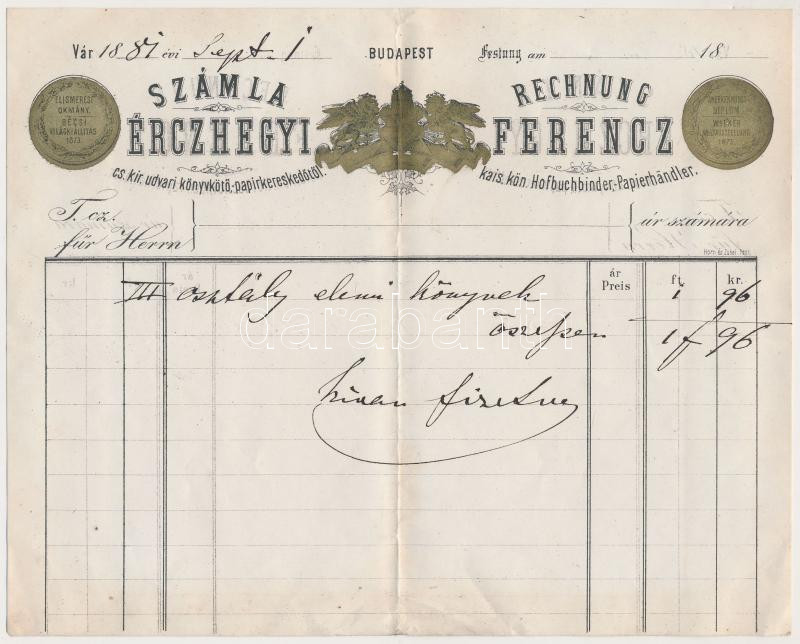 Vár 1881 évi Sept. 1 BUDAPEST Festung am 18
SZÁMLA RECHNUNG
ELISMERÉSI
OKMÁNY.
BÉCSI
VILÁGKIÁLLÍTÁS
1873.
ANERKENNUNGS
DIPLOM
WIENER
WELTAUSSTELLUNG
1873.
ÉRCZHEGYI FERENCZ
cs. kir. udvari könyvkötő,-papirkereskedőtől.
kais. kön. Hofbuchbinder,-Papierhändler.
T. cz. úr számára
für Herrn
Horn és Zutel Pest.
ár ft. kr.
Preis
III osztály elemi könyvek 1 96
öszesen 1 f 96
fizetve
darabanth